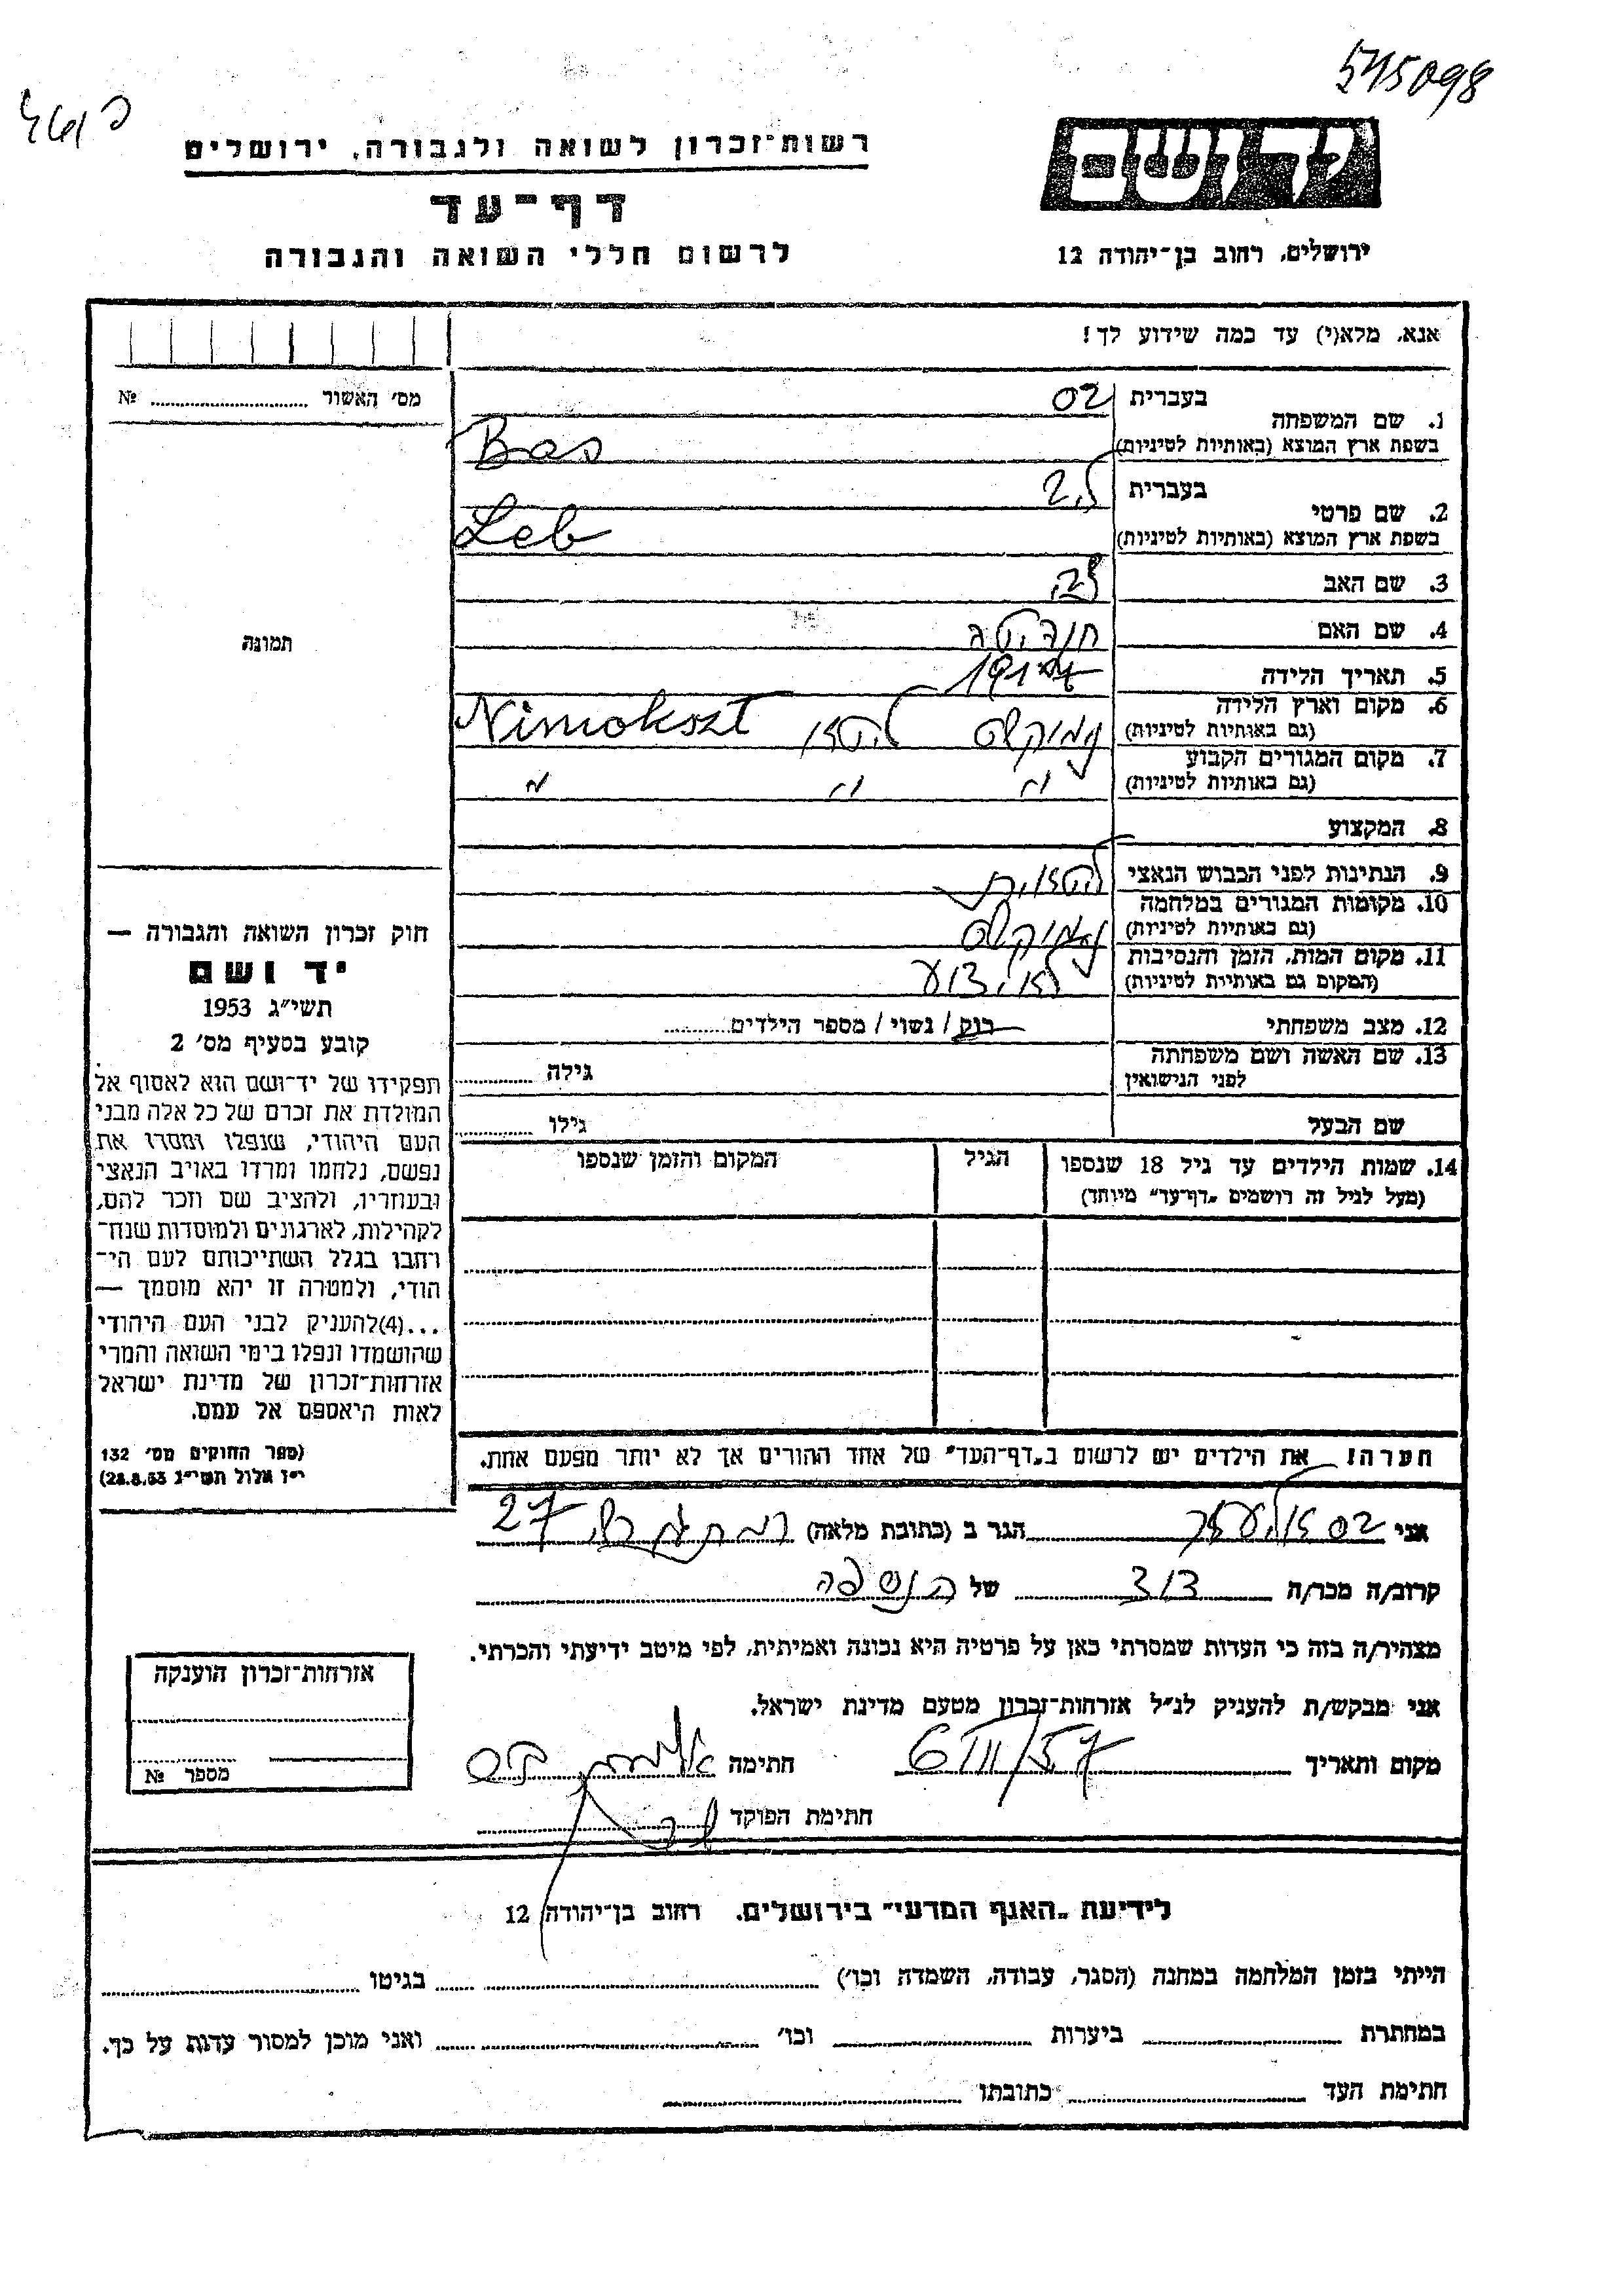 545098
רשות־זכרון לשואה ולגבורה, ירושלים
דף־עד
לרשום חללי השואה והגבורה
יד ושם
ירושלים, רחוב בן־יהודה 12
אנא, מלא(י) עד כמה שידוע לך!
מס׳ האשור № 
1. שם המשפחה בעברית בס
בשפת ארץ המוצא (באותיות לטיניות) Bas
2. שם פרטי בעברית
בשפת ארץ המוצא (באותיות לטיניות) Leb
3. שם האב
4. שם האם
5. תאריך הלידה
6. מקום וארץ הלידה
(גם באותיות לטיניות) נמוקשט Nimokszt
7. מקום המגורים הקבוע
(גם באותיות לטיניות) " " "
8. המקצוע
9. הנתינות לפני הכבוש הנאצי
10. מקומות המגורים במלחמה
(גם באותיות לטיניות) נמוקשט
11. מקום המות, הזמן והנסיבות
(המקום גם באותיות לטיניות) לא ידוע
12. מצב משפחתי רוק / נשוי / מספר הילדים
13. שם האשה ושם משפחתה
לפני הנישואין גילה
שם הבעל גילו
14. שמות הילדים עד גיל 18 שנספו הגיל המקום והזמן שנספו
(מעל לגיל זה רושמים „דף־עד״ מיוחד)
הערה! את הילדים יש לרשום ב„דף־העד״ של אחד ההורים אך לא יותר מפעם אחת.
תמונה
חוק זכרון השואה והגבורה —
יד ושם
תשי״ג 1953
קובע בסעיף מס׳ 2
תפקידו של יד־ושם הוא לאסוף אל
המולדת את זכרם של כל אלה מבני
העם היהודי, שנפלו ומסרו את
נפשם, נלחמו ומרדו באויב הנאצי
ובעוזריו, ולהציב שם וזכר להם,
לקהילות, לארגונים ולמוסדות שנח־
רחבו בגלל השתייכותם לעם הי־
הודי, ולמטרה זו יהא מוסמך —
...(4)להעניק לבני העם היהודי
שהושמדו ונפלו בימי השואה והמרי
אזרחות־זכרון של מדינת ישראל
לאות היאספם אל עמם.
(ספר החוקים מס׳ 132
י״ז אלול תשי״ג 28.8.53)
אני בס אליעזר הגר ב (כתובת מלאה) 27
קרוב/ה מכר/ה דוד של הנספה
מצהיר/ה בזה כי העדות שמסרתי כאן על פרטיה היא נכונה ואמיתית, לפי מיטב ידיעתי והכרתי.
אני מבקש/ת להעניק לנ״ל אזרחות־זכרון מטעם מדינת ישראל.
מקום ותאריך 6/III/57 חתימה
חתימת הפוקד
אזרחות־זכרון הוענקה
מספר №
לידיעת „האגף המדעי״ בירושלים, רחוב בן־יהודה 12
הייתי בזמן המלחמה במחנה (הסגר, עבודה, השמדה וכו׳) בגיטו
במחתרת ביערות וכו׳ ואני מוכן למסור עדות על כך.
חתימת העד כתובתו